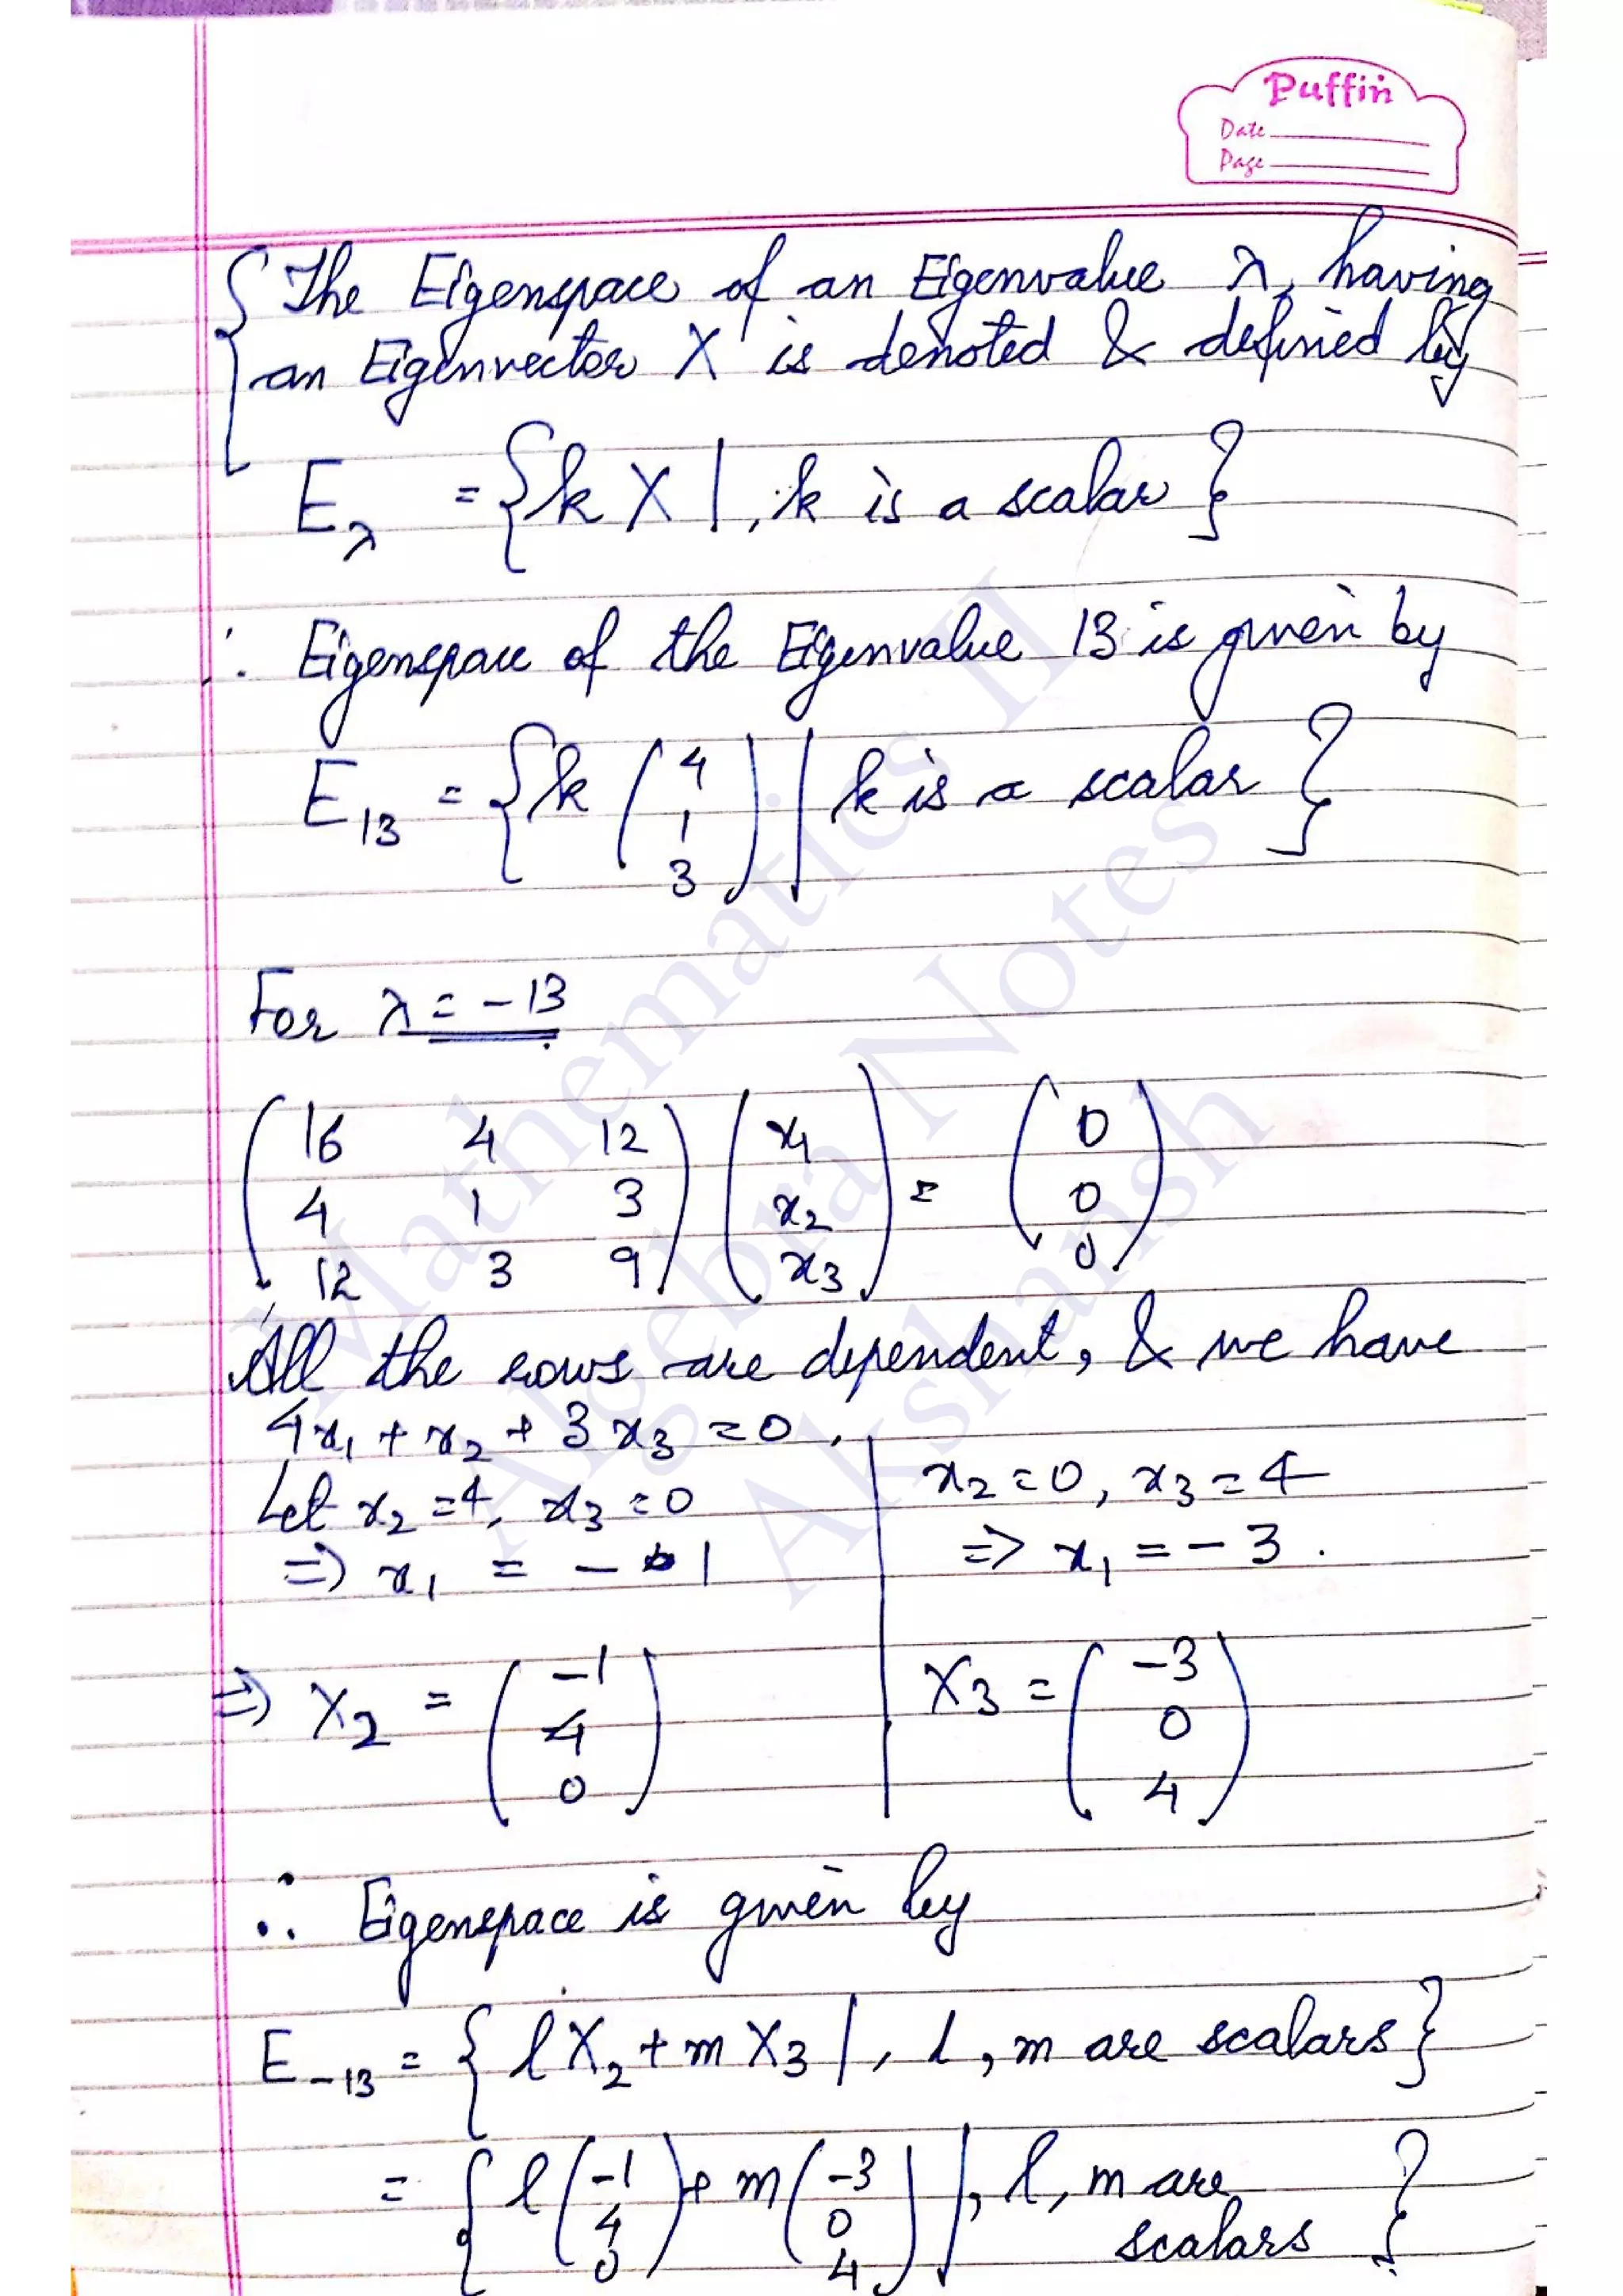 Puffin
Date
Page
The Eigenspace of an Eigenvalue λ, having
an Eigenvector X is denoted & defined by
E_λ = {k X |, k is a scalar}
∴ Eigenspace of the Eigenvalue 13 is given by
E_13 = {k (4 1 3) | k is a scalar}
For λ = -13
(16 4 12) (x1) = (0)
(4 1 3) (x2) (0)
(12 3 9) (x3) (0)
All the rows are dependent, & we have
4x1 + x2 + 3x3 = 0.
Let x2 = 4, x3 = 0
⇒ x1 = -1
x2 = 0, x3 = 4
⇒ x1 = -3.
⇒ X2 = (-1 4 0)
X3 = (-3 0 4)
∴ Eigenspace is given by
E_-13 = {l X2 + m X3 |, l, m are scalars}
= {l (-1 4 0) + m (-3 0 4) |, l, m are
scalars}
Mathematics II
Algebra Notes
Akshansh